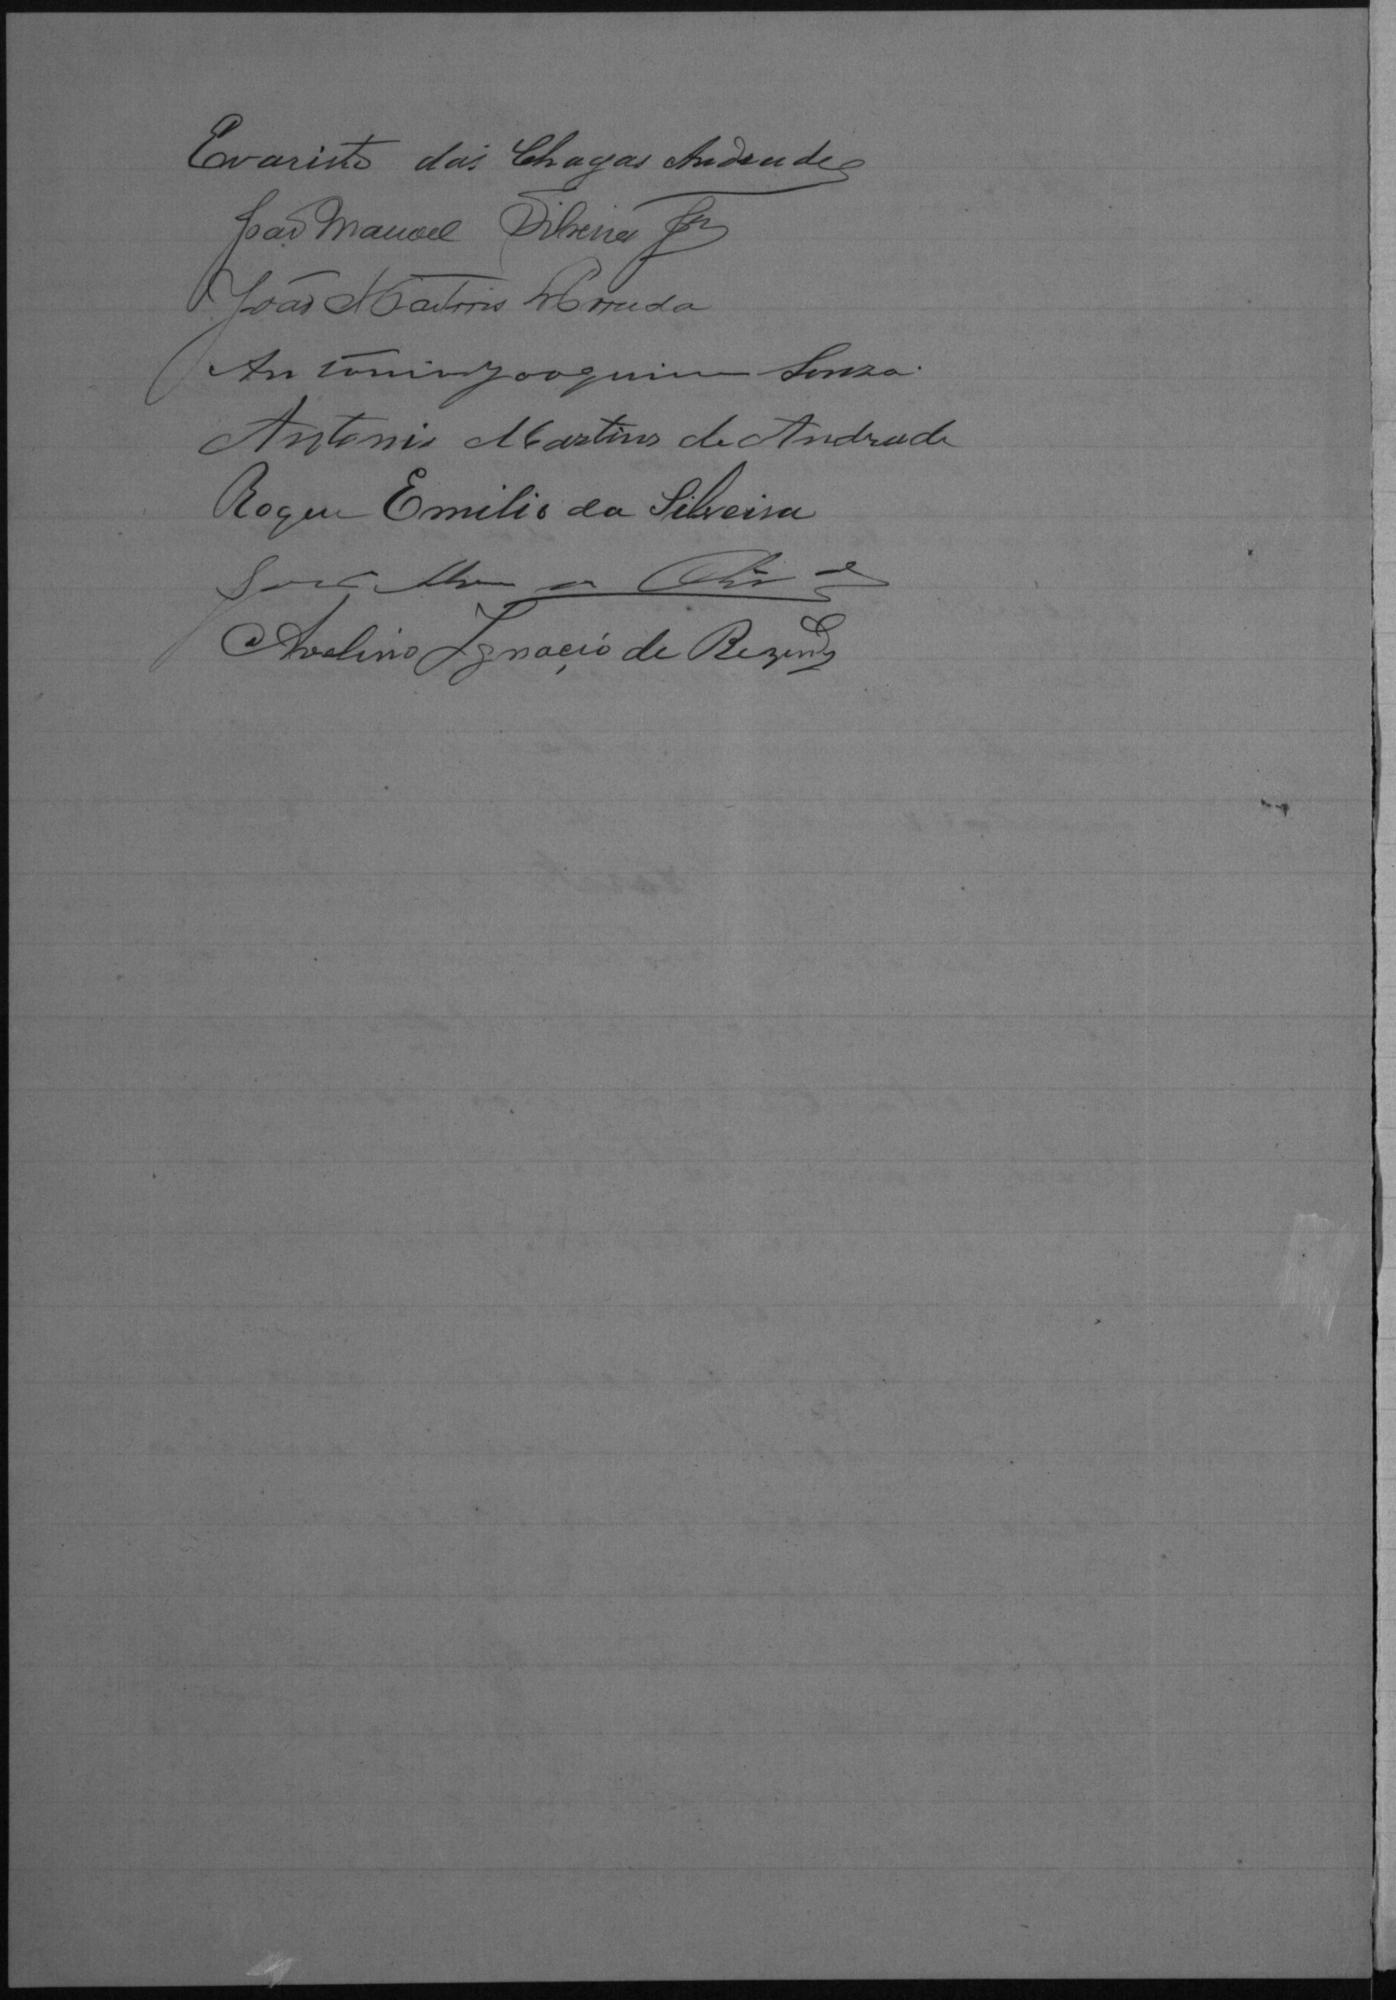 Evaristo das Chagas Andrade
João Manoel Silveira Jor
João Martins Arruda
Antonio Joaquim Souza.
Antonio Martins de Andrade
Roque Emilio da Silveira
José
Avelino Ignacio de Rezende